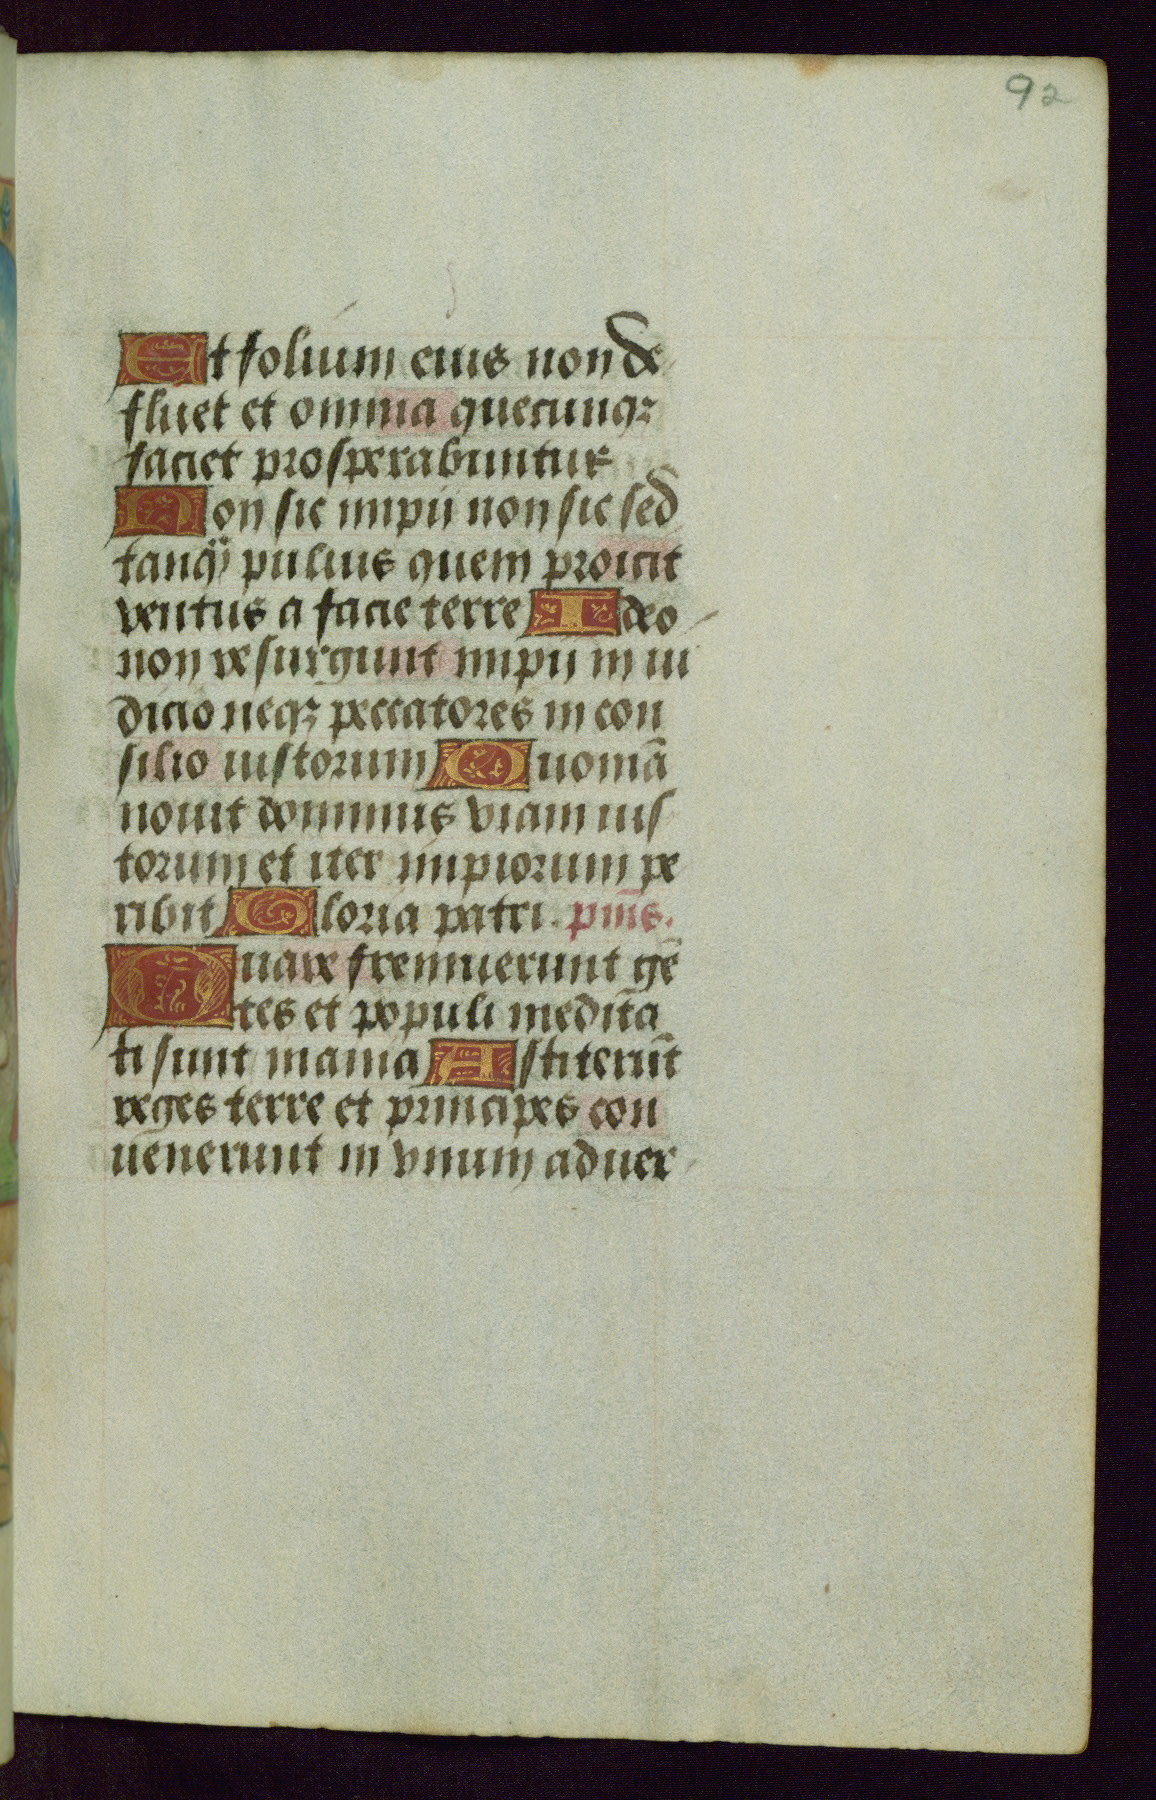 92
Et folium eius non de
fluet et omnia quecunqꝫ
faciet prosperabuntur
Non sic impii non sic sed
tanqͣ puluis quem proicit
ventus a facie terre Ideo
non resurgunt impii in iu
dicio neqꝫ peccatores in con
silio iustorum Quoniā
nouit dominus viam ius
torum et iter impiorum pe
ribit Gloria patri. pm̄s.
Quare fremuerunt gē
tes et populi medita
ti sunt inania Astiterūt
reges terre et principes con
uenerunt in vnum aduer